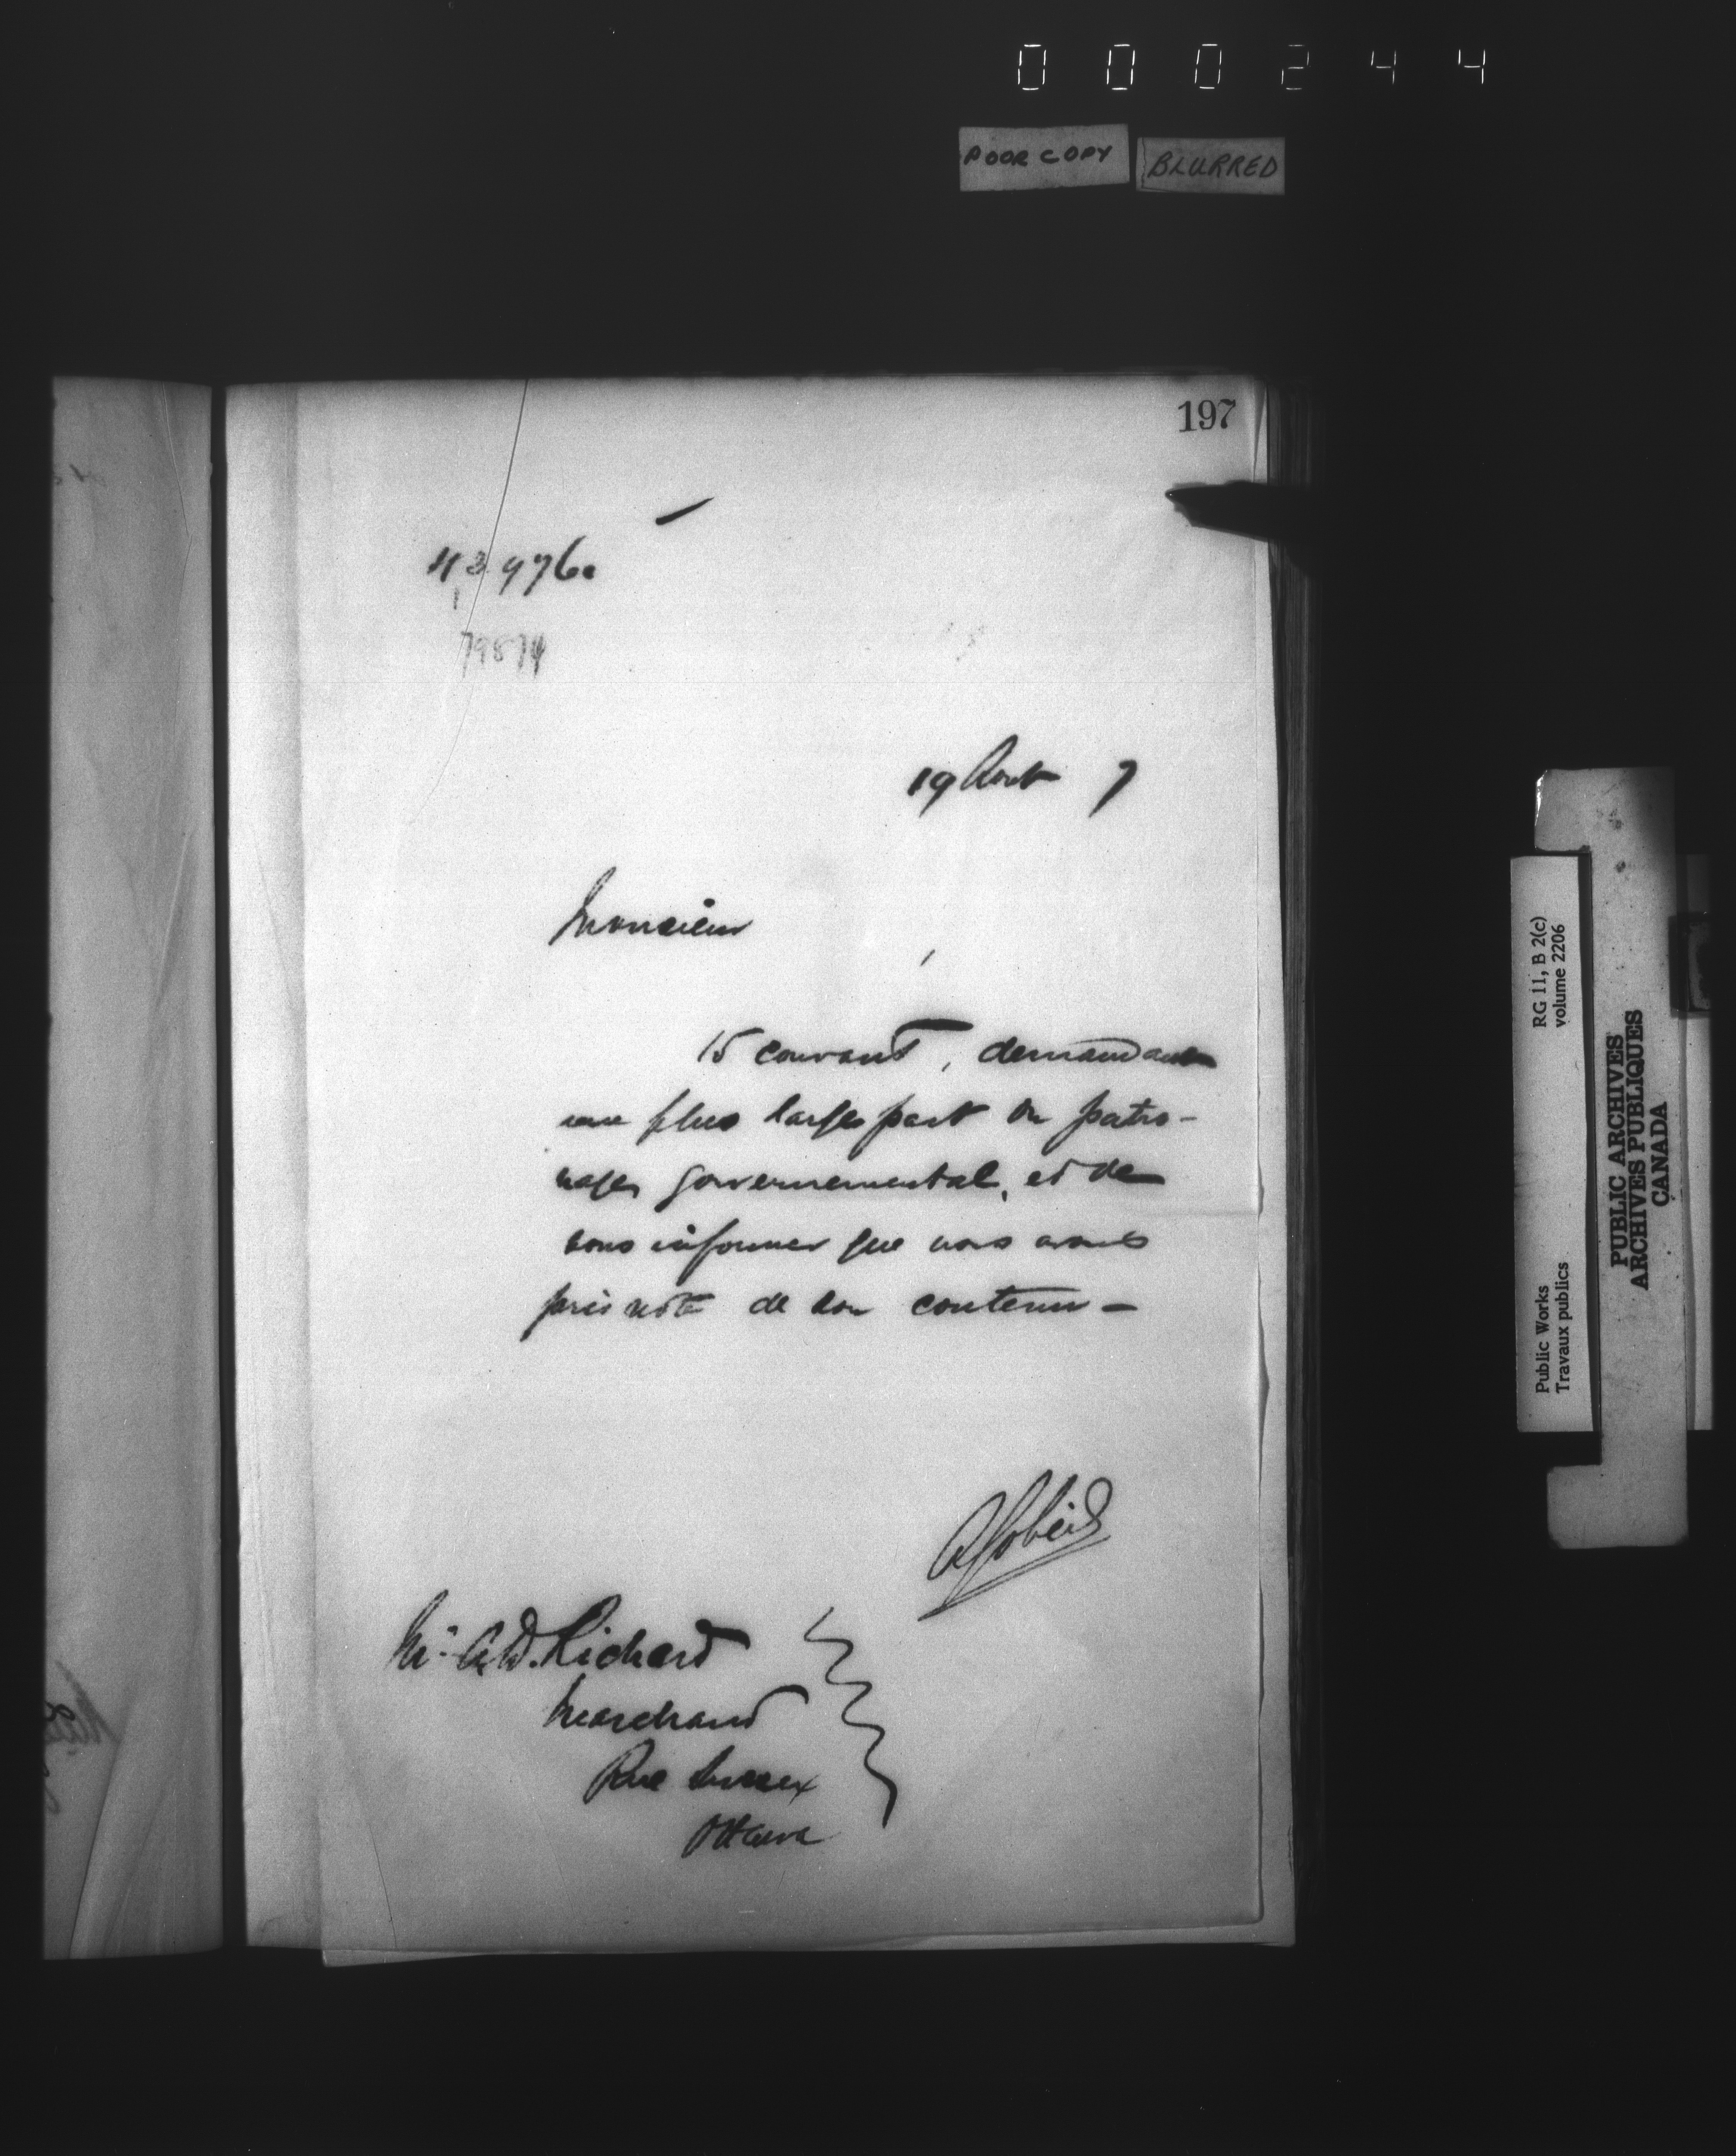 000244
POOR COPY
BLURRED
197
43976.
79874
19 Aout 7
Monsieur
15 courant, demandant
une plus large part du patro-
nage gouvernemental, et de
vous informer que nous avons
pris note de son contenu -
A Gobeil
Mr. A.D. Richard
Marchand
Rue Sussex
Ottawa
RG 11, B 2(c)
volume 2206
Public Works
Travaux publics
PUBLIC ARCHIVES
ARCHIVES PUBLIQUES
CANADA